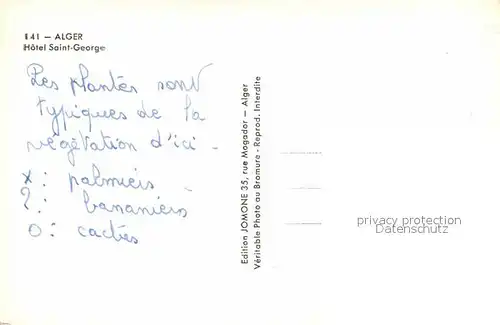 141 — ALGER
Hôtel Saint-George
Les plantes sont
typiques de la
végétation d'ici -
x : palmiers
? : bananiers
o : cactées
Edition JOMONE 35, rue Mogador — Alger
Véritable Photo au Bromure - Reprod. Interdite
privacy protection
Datenschutz